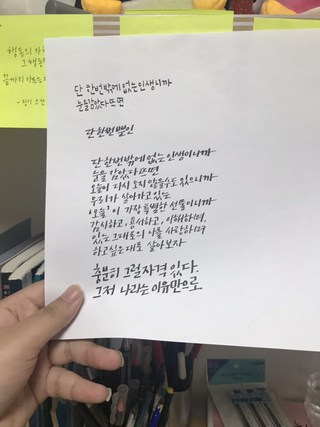 행동의
끝까지
단 한번밖에 없는 인생이니까
눈을 감았다 뜨면
단 한번뿐인
단 한번밖에 없는 인생이니까
눈을 감았다 뜨면
오늘이 다시 오지 않을수도 있으니까
우리가 살아가고 있는
'오늘'이 가장 특별한 선물이니까
감사하고, 용서하고, 이해하며,
있는 그대로의 나를 사랑하며
하고싶은대로 살아보자
충분히 그럴 자격 있다.
그저 나라는 이유만으로.